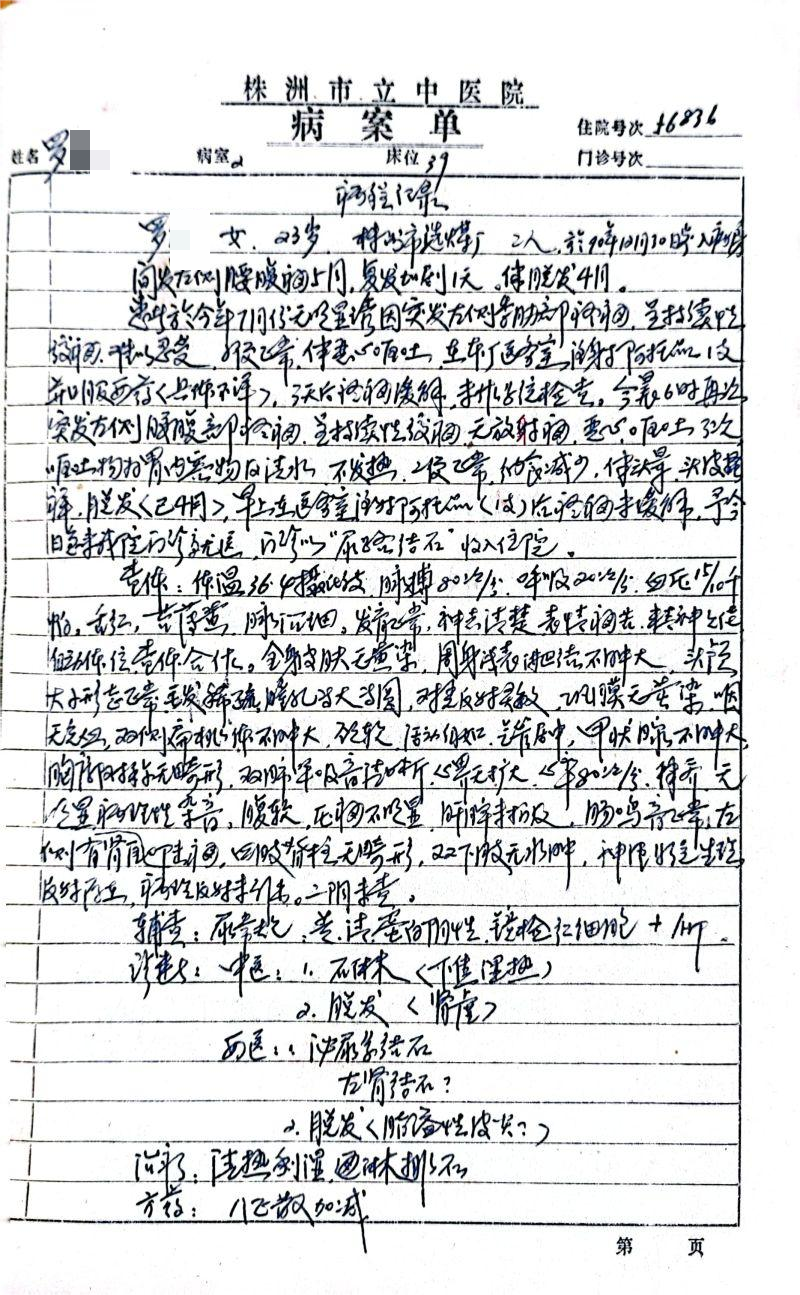 株洲市立中医院
病案单
住院号次 46836
姓名 罗 病室 2 床位 39 门诊号次
病程纪录
罗 女、23岁 株洲市选煤厂 工人、於90年12月30日 入病房
间发左侧腰腹痛5月,复发加剧1天。伴脱发4月。
患者於今年7月份无明显诱因突发左侧季肋部疼痛,呈持续性
绞痛,难以忍受,二便正常,伴恶心呕吐,在本厂医务室注射阿托品1支
并口服西药(具体不详),3天后疼痛缓解,未作任何检查。今晨6时再次
突发左侧腰腹部疼痛,呈持续性绞痛,无放射痛,恶心,呕吐3次
呕吐物为胃内容物及清水,不发热,二便正常,纳食减少,伴头晕,头皮瘙
痒,脱发(已4月),早上在医务室注射阿托品(1支)后疼痛未缓解,于今
日急来我院门诊就医,门诊以“尿路结石”收入住院。
查体:体温36.4摄氏度,脉搏80次/分,呼吸20次/分,血压15/10千
帕,舌红,苔薄黄,脉沉细。发育正常,神志清楚,表情痛苦,精神欠佳
自动体位,查体合作。全身皮肤无黄染,周身浅表淋巴结不肿大,头颅
大小形态正常,毛发稀疏,瞳孔等大等圆,对光反射灵敏,巩膜无黄染,咽
无充血,双侧扁桃体不肿大,颈软,活动自如,气管居中,甲状腺不肿大,
胸廓对称无畸形,双肺呼吸音清晰,心界无扩大,心率80次/分,律齐,无
明显病理性杂音,腹软,压痛不明显,肝脾未扪及,肠鸣音正常,左
侧有肾区叩击痛,四肢脊柱无畸形,双下肢无水肿,神经系统生理
反射存在,病理反射未引出。二阴未查。
辅查:尿常规:黄、清,蛋白阴性,镜检红细胞+/HP。
诊断:中医:1. 石淋(下焦湿热)
2. 脱发(肾虚)
西医:1. 泌尿系结石
左肾结石?
2. 脱发(脂溢性皮炎?)
治则:清热利湿,通淋排石
方药:八正散加减
第 页